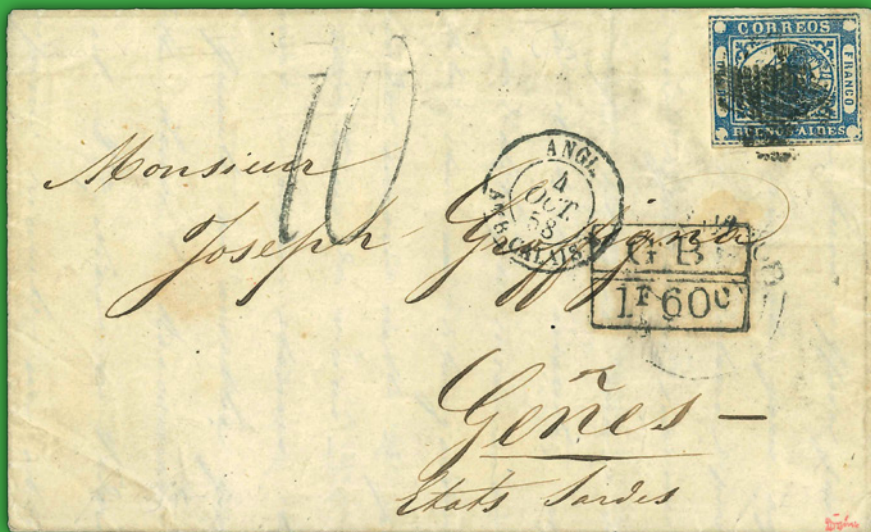 CORREOS
FRANCO
BUENOS AIRES
10
ANGL.
4
OCT
58
AMB. CALAIS
Monsieur
Joseph
GB
1F60C
Gênes —
Etats Sardes